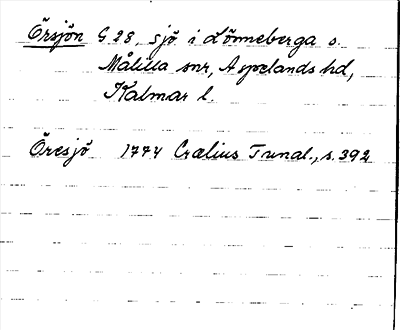 Örsjön G 28, sjö i Lönneberga o.
Målilla snr, Aspelands hd,
Kalmar l.
Öresjö 1744 Crælius Tunal., s. 392